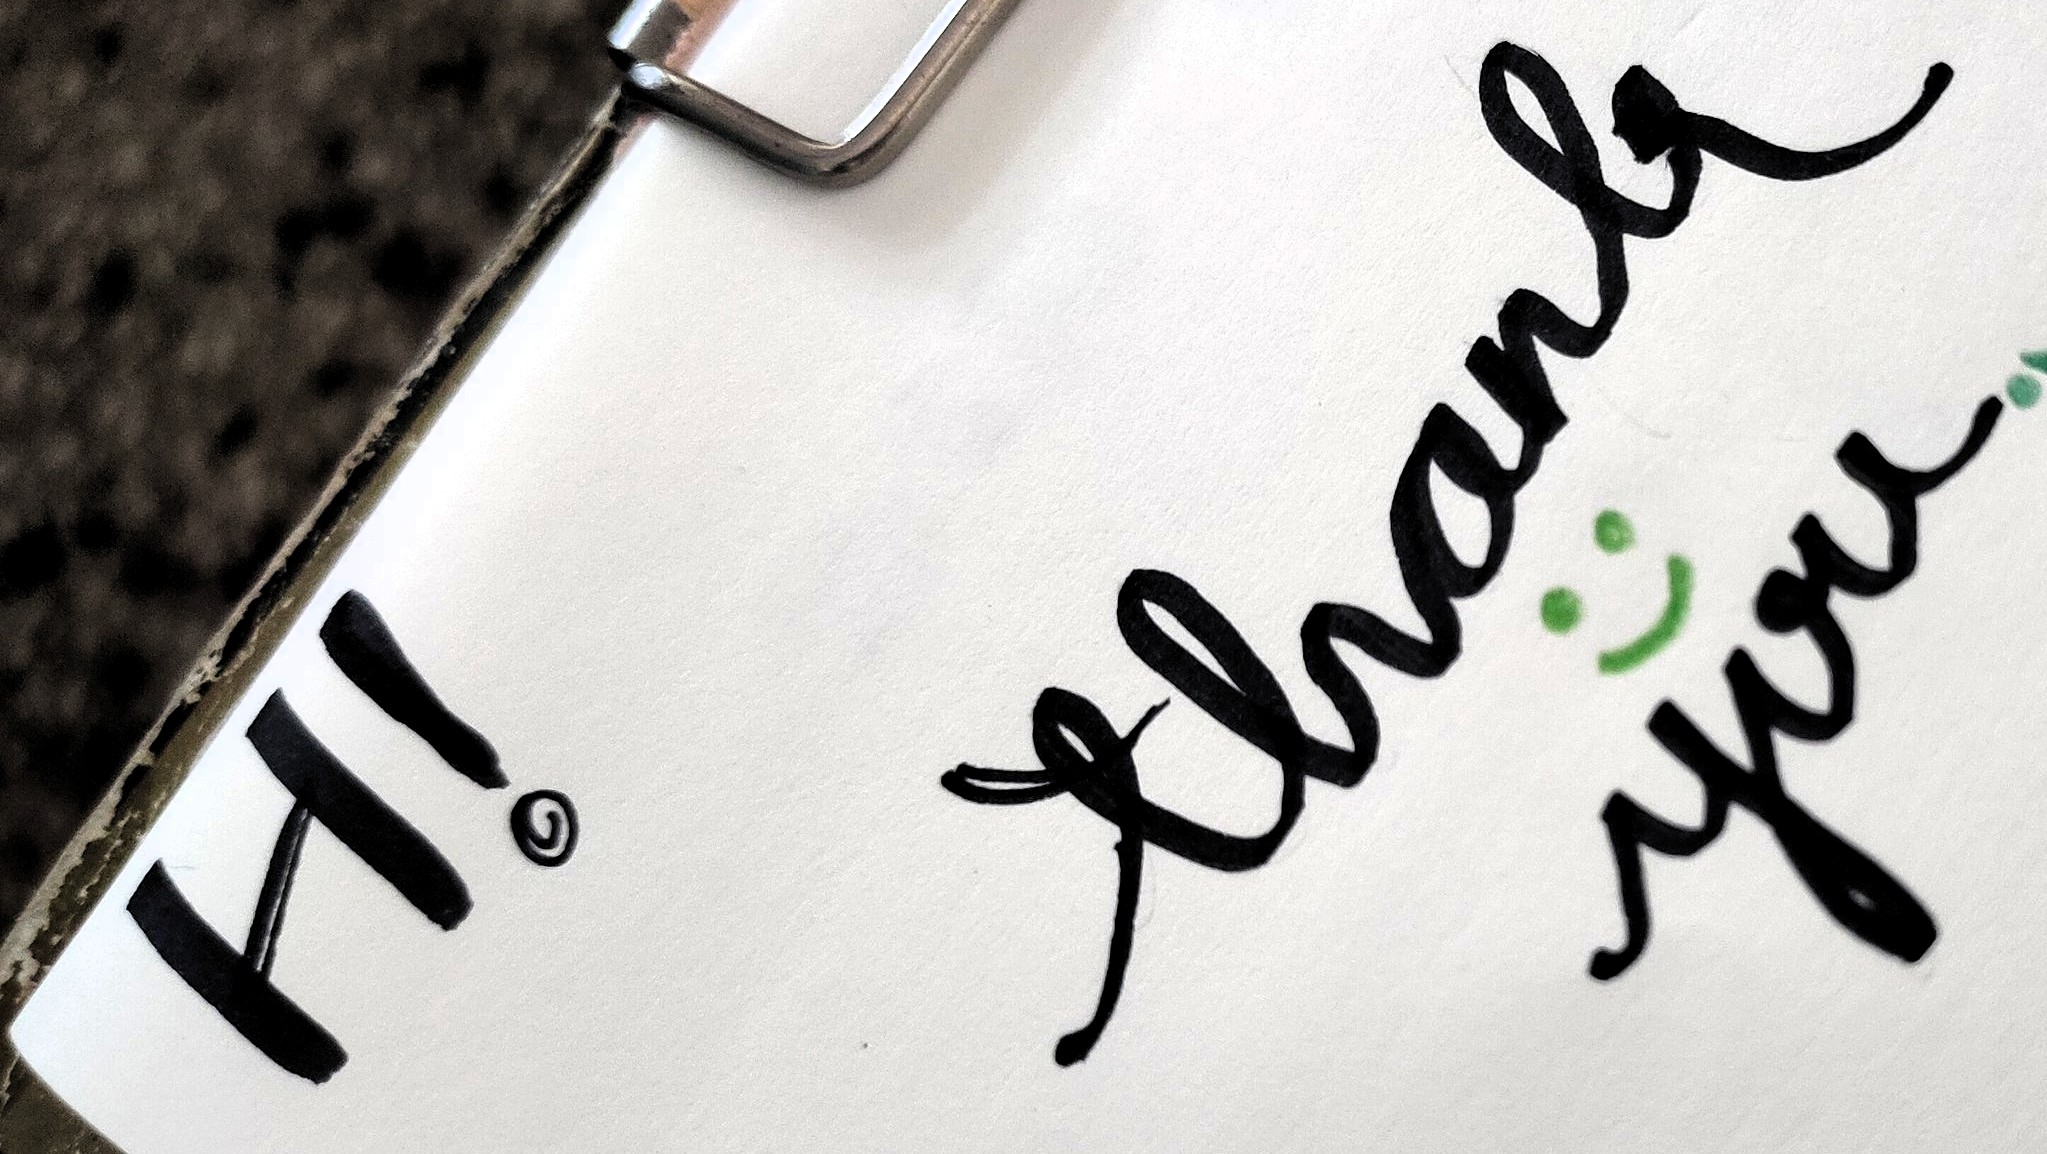 H!
thank
you